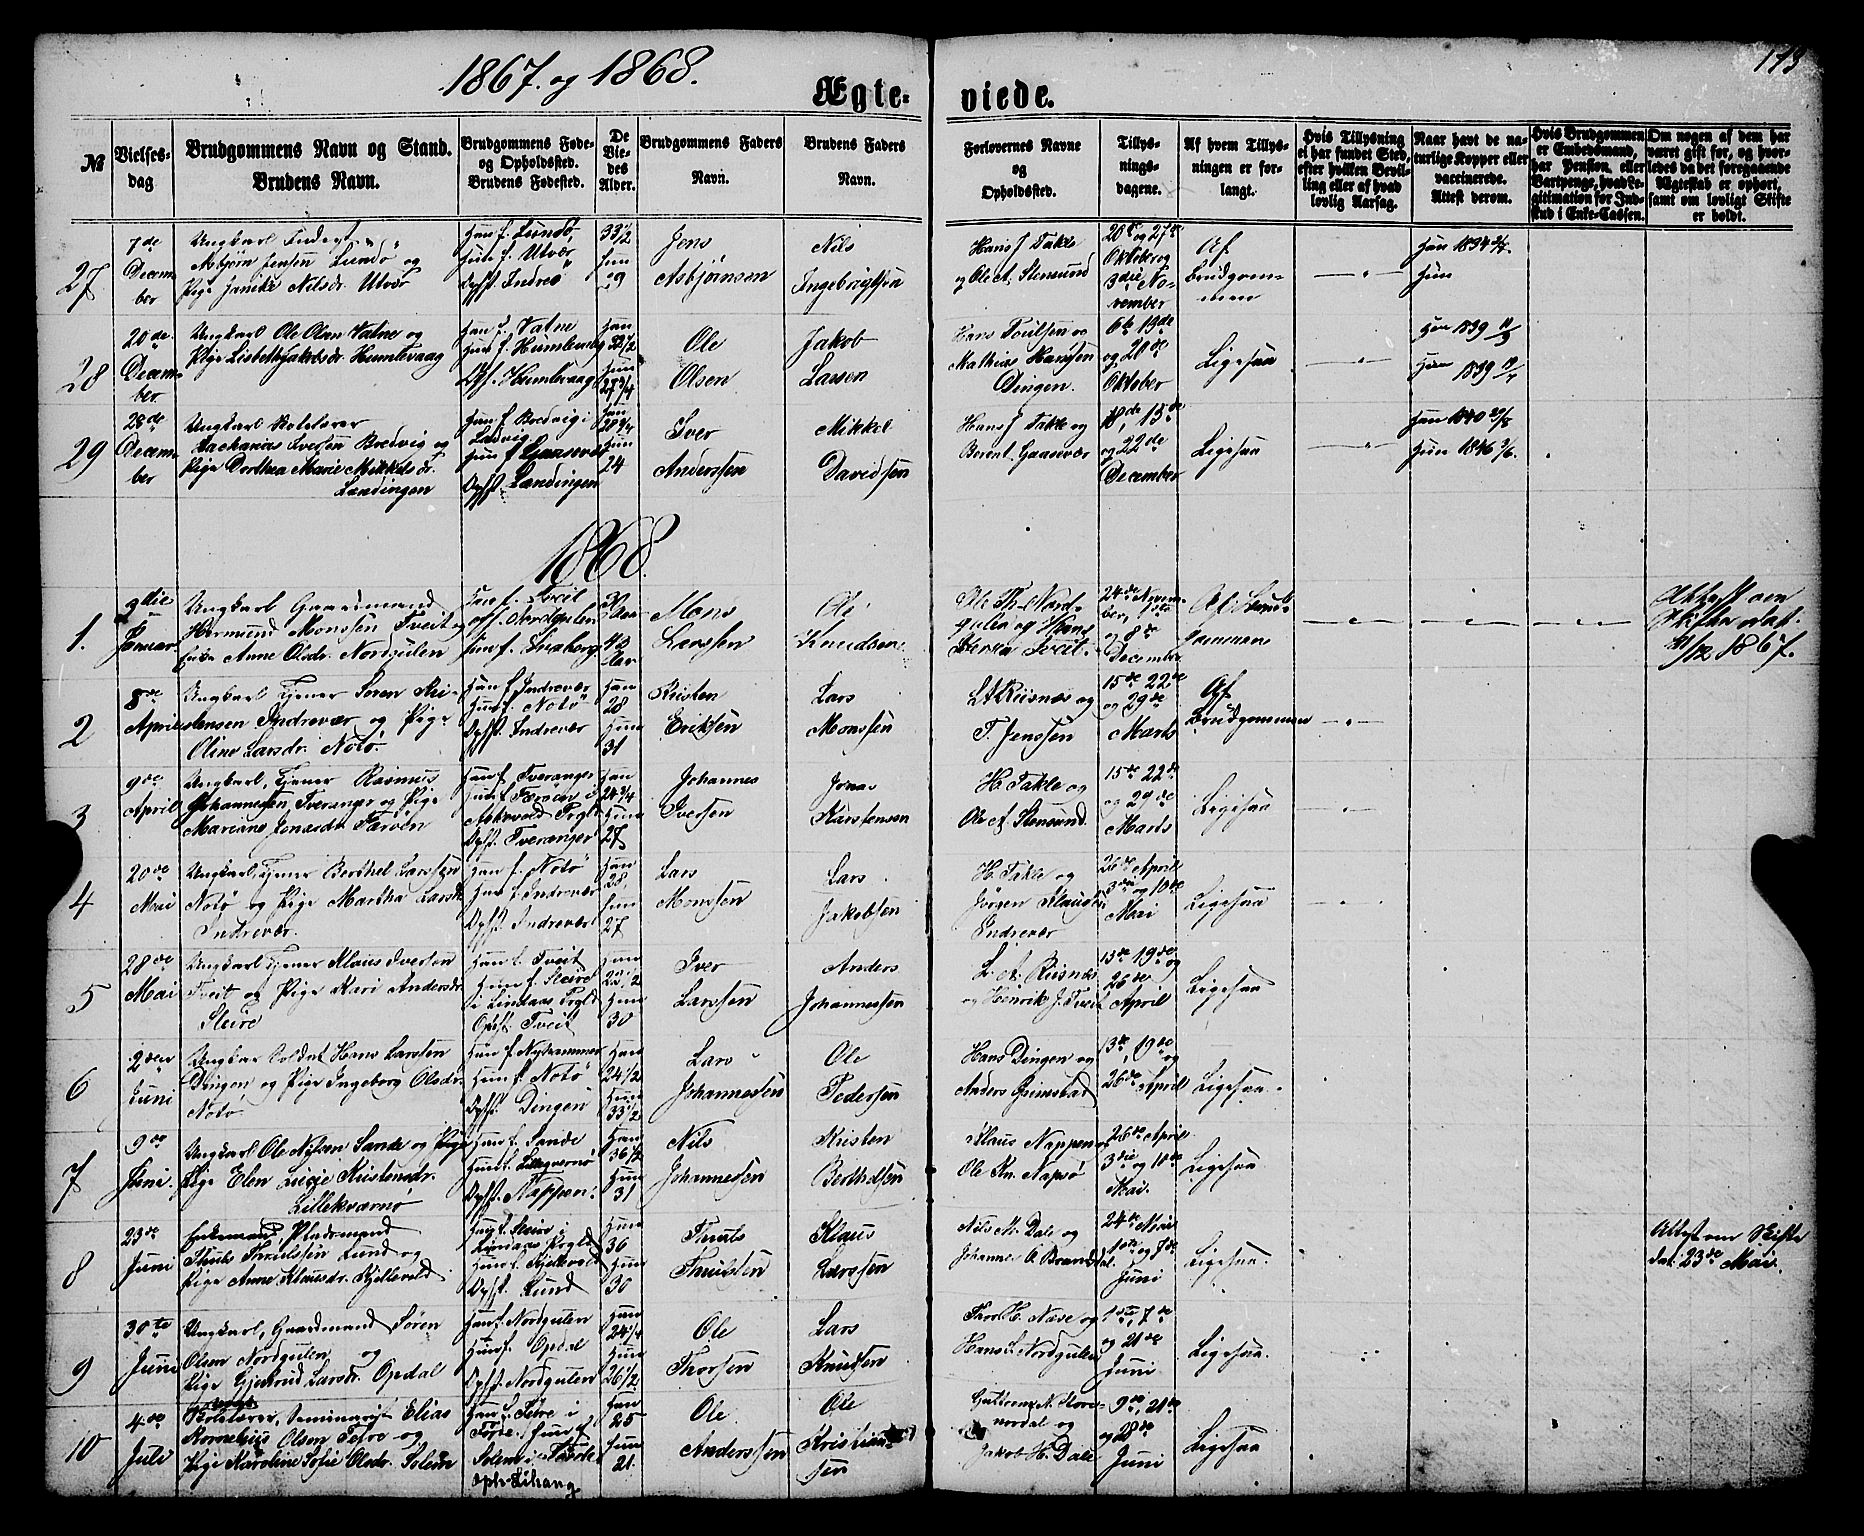 1867. og 1868.
173
Ægte-
viede.
№
Vielses-
dag
Brudgommens Navn og Stand.
Brudens Navn.
Brudgommens Føde-
og Opholdssted.
Brudens Fødested.
De
Vie-
des
Alder.
Brudgommens Faders
Navn.
Brudens Faders
Navn.
Forlovernes Navne
og
Opholdssted.
Tillys-
nings-
dagene.
Af hvem Tillys-
ningen er for-
langt.
Hvis Tillysning
ei har fundet Sted,
efter hvilken Bevil-
ling eller af hvad
lovlig Aarsag.
Naar havt de na-
turlige Kopper eller
vaccinerede.
Attest derom.
Hvis Brudgommen
er Embedsmand,
har Pension, eller
Vartpenge, hvad Le-
gitimation for Ind-
skud i Enke-Cassen.
Om nogen af dem har
været gift før, og hvor-
ledes da det foregaaende
Ægteskab er ophørt,
samt om lovligt Skifte
er holdt.
27
7de
Decem-
ber
Ungkarl
Asbjørn Jensen Lundø og
Pige Janike Nilsdr. Utvær
Han f. Lundø,
Hun f. Utvær
Ophst. Indreø
33 1/2
Hun
29
Jens
Asbjørnsen
Nils
Ingebrigtsen
Hans J Takle
og Ole A. Stensund
20de og 27de
Oktober og
3die No-
vember
Af
Brudgom-
men
Han 1834
Hun
28
20de
Decem-
ber
Ungkarl Ole Olsen Vatne og
Pige Lisbeth Jakobsdr. Humlevaag
Han f. Vatne
Hun f. Humlevaag
Ophst. Humlevaag
Han
22 1/2
Hun
27 3/4
Ole
Olsen
Jakob
Lassen
Hans Poulsen og
Mathias Hansen
Dingen.
6te 13de
og 20de
Oktober
Ligesaa
Han 1839
Hun 1839
29
28de
Decem-
ber
Ungkarl Rotelærer
Zacharias Iversen Bredvig og
Pige Dorthea Marie Mikkelsdr.
Landingen
Han f. Bredvig i
Ladvig
Hun f.
Ophst. Landingen
Han
28 3/4
Hun
24
Iver
Anderssen
Mikkel
Davidsen
Hans J Takle og
Berent Gaasvær
15de
og 22de
December
Ligesaa
Han 1840
Hun 1846
1868.
1.
3die
Januar
Ungkarl Gaardmand
Hermund Monssen Tveit og
Enke Anne Olsdr. Nordgulen
Han f. Tveit
Opst. Nordgulen
Hun f.
30
Aar
43
Aar
Mons
Larssen
Ole
Knudsen
Ole Th Nord-
gulen og Hans
Tveit
24de Novem-
ber, 1ste
og 8de
December
Af Brud-
gommen
Attest om
Skifte dat.
31/12 1867.
2
8de
April
Ungkarl Tjener Søren Kri-
stensen Indrevær og Pige
Oline Larsdr. Notø
Han f. Indrevær
Hun f. Notø
Ophst. Indrevær
Han
28
Hun
31
Kristen
Eriksen
Lars
Monssen
L A Riisnæs og
T. Jenssen
15de 22de
og 29de
Marts
Af
Brudgommen
3
9de
April
Ungkarl, Tjener Rasmus
Johannesen Tveranger og Pige
Mariane Jonasdr. Færøen
Han f. Tveranger
Hun f. Færøen i
Askevold Prgld
Ophst. Tveranger
Han
24 3/4
Hun
27
Johannes
Iversen
Jonas
Karstensen
H. Takle og
Ole A. Stensund.
15de 22de
og 29de
Marts
Ligesaa
4
20de
Mai
Ungkarl, Tjener Berthel Larssen
Notø og Pige Martha Larsdr.
Indrevær.
Han f. Notø
Hun f. Indrevær
Ophst. Indrevær
Han
28,
Hun
27
Lars
Monssen
Lars
Jakobsen
H. Takle og
Jørgen Klausen
Indrevær
26de April
3die og 10de
Mai
Ligesaa
5
28de
Mai
Ungkarl Tjener Klaus Iversen
Tveit og Pige Kari Andersdr.
Sleire
Han f. Tveit
Hun f. Sleire
i Lindaas Prgld
Ophst. Tveit
Han
25 1/2
Hun
30
Iver
Larssen
Anders
Johannessen
L. A. Riisnæs
og Henrik J. Tveit
13de 19de og
26de
April
Ligesaa
6
2den
Juni
Ungkar Soldat Hans Larssen
Dingen, og Pige Ingeborg Olsdr.
Notø
Han f. Nyhammer
Hun f. Notø
Ophst. Dingen
Han
24 1/2
Hun
33 1/2
Lars
Johannessen
Ole
Pedersen
Hans Dingen og
Anders Grimstad
13de, 19de og
26de April
Ligesaa.
7
9de
Juni.
Ungkarl Ole Nilsen Sande og Pige
Pige Elen Lucie Kristensdr.
Lillekværnø
Han f. Sande
Hun f. Lilleqværnø
Ophst. Nappen.
Han
36 1/2
Hun
31
Nils
Johannessen
Kristen
Berthelsen
Klaus Nappen og
Ole Kn. Napsø
26de April
3die og 10de
Mai.
Ligesaa.
8
23de
Juni
Enkemand Pladsmand
Thuls Thulssen Lund og
Pige Anne Klausdr. Kjellevold
Han f. Sleire i
Lindaas Prgld
Hun f. Kjellevold
Ophst. Lund
Han
36
Hun
30
Thuls
Thulssen
Klaus
Larssen
Nils M. Dale og
Johannes A Brandsdal.
24de Mai
1ste og 7de
Juni
Ligesaa.
Attest om Skifte
dat. 23de Mai.
9
30te
Juni
Ungkarl, Gaardmand Søren
Olsen Nordgulen og
Pige Gjertrud Larsdr. Opdal
Han f. Nordgulen
Hun f. Opdal
Ophst. Nordgulen
Han
24 1/4
Hun
26 1/2
Ole
Thorsen
Lars
Knudsen
Thor H. Næse og
Hans L. Nordgulen
1ste, 7de
og 21de
Juni
Ligesaa.
10
4de
Juli
Rotelærer, Seminarist Elias
Kornelius Olsen Fetre og
Pige Karoline Sofie Olsdr. Solem
Han f. i
Førde. Hun f.
Solem i Førde
Oph: Lihaug
Han
25
Hun
21.
Ole
Anderssen
Ole
Kristian-
sen
Guttorm N. Store-
nordal og
Jakob H. Dale
9de, 21de
og 28de
Juni
Ligesaa